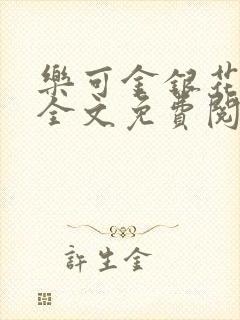 樂可金銀花
全文免費閱
許生金